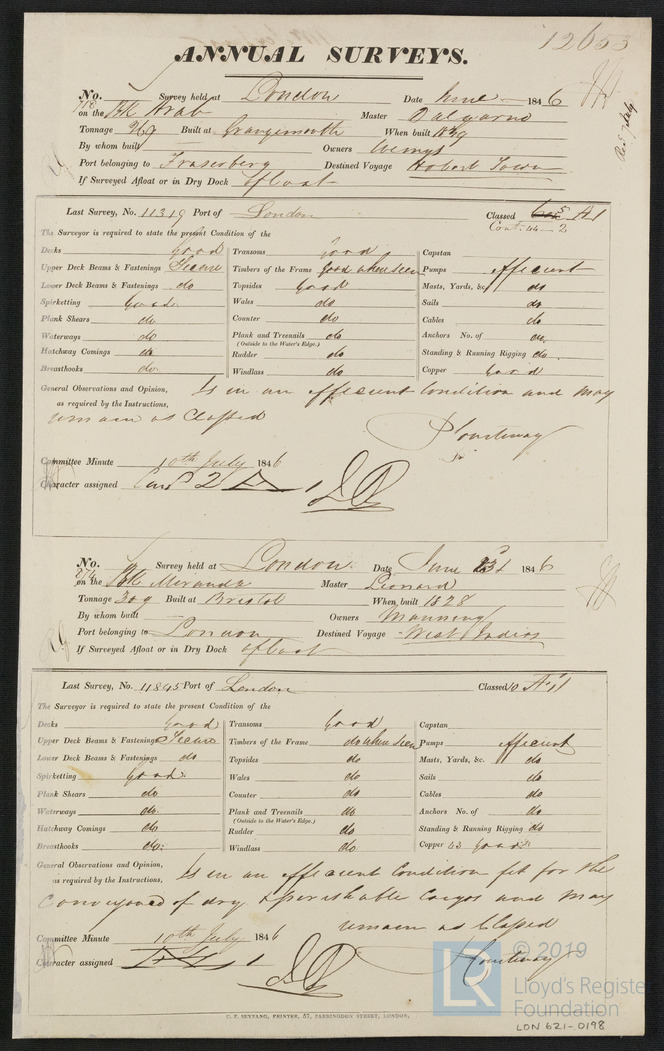 12653
ANNUAL SURVEYS.
No. 718 Survey held at London Date June 1846
on the Bk Krab Master Dalgarno
Tonnage 267 Built at Grangemouth When built 1839
By whom built Owners Wemys
Port belonging to Fraserberg Destined Voyage Hobert Town
If Surveyed Afloat or in Dry Dock afloat
Last Survey, No. 11319 Port of London Classed A1
Cont. 44-2
The Surveyor is required to state the present Condition of the
Decks Good Transoms Good Capstan
Upper Deck Beams & Fastenings Secure Timbers of the Frame good when seen Pumps efficient
Lower Deck Beams & Fastenings do Topsides Good Masts, Yards, &c. do
Spirketting Good Wales do Sails do
Plank Shears do Counter do Cables do
Waterways do Plank and Treenails do Anchors No. of do
(Outside to the Water's Edge.)
Hatchway Comings do Rudder do Standing & Running Rigging do
Breasthooks do Windlass do Copper Good
General Observations and Opinion, as required by the Instructions, Is in an efficient Condition and may
remain as Classed
P Courtenay
Committee Minute 10th July 1846
Character assigned Cont 2 A 1
No. 274 Survey held at London Date June 1846
on the Bk Meranda Master Leonard
Tonnage 309 Built at Bristol When built 1828
By whom built Owners Manning
Port belonging to London Destined Voyage West Indies
If Surveyed Afloat or in Dry Dock afloat
Last Survey, No. 11845 Port of London Classed 10 A1
The Surveyor is required to state the present Condition of the
Decks Good Transoms Good Capstan
Upper Deck Beams & Fastenings Secure Timbers of the Frame do when seen Pumps efficient
Lower Deck Beams & Fastenings do Topsides do Masts, Yards, &c. do
Spirketting Good Wales do Sails do
Plank Shears do Counter do Cables do
Waterways do Plank and Treenails do Anchors No. of do
(Outside to the Water's Edge.)
Hatchway Comings do Rudder do Standing & Running Rigging do
Breasthooks do Windlass do Copper 43 Good
General Observations and Opinion, as required by the Instructions, Is in an efficient Condition fit for the
Conveyance of dry & perishable Cargos and may
remain as Classed
Courtenay
Committee Minute 10th July 1846
Character assigned
C. F. SEYFANG, PRINTER, 57, FARRINGDON STREET, LONDON.
LR
© 2019
Lloyd's Register
Foundation
LON 621-0198